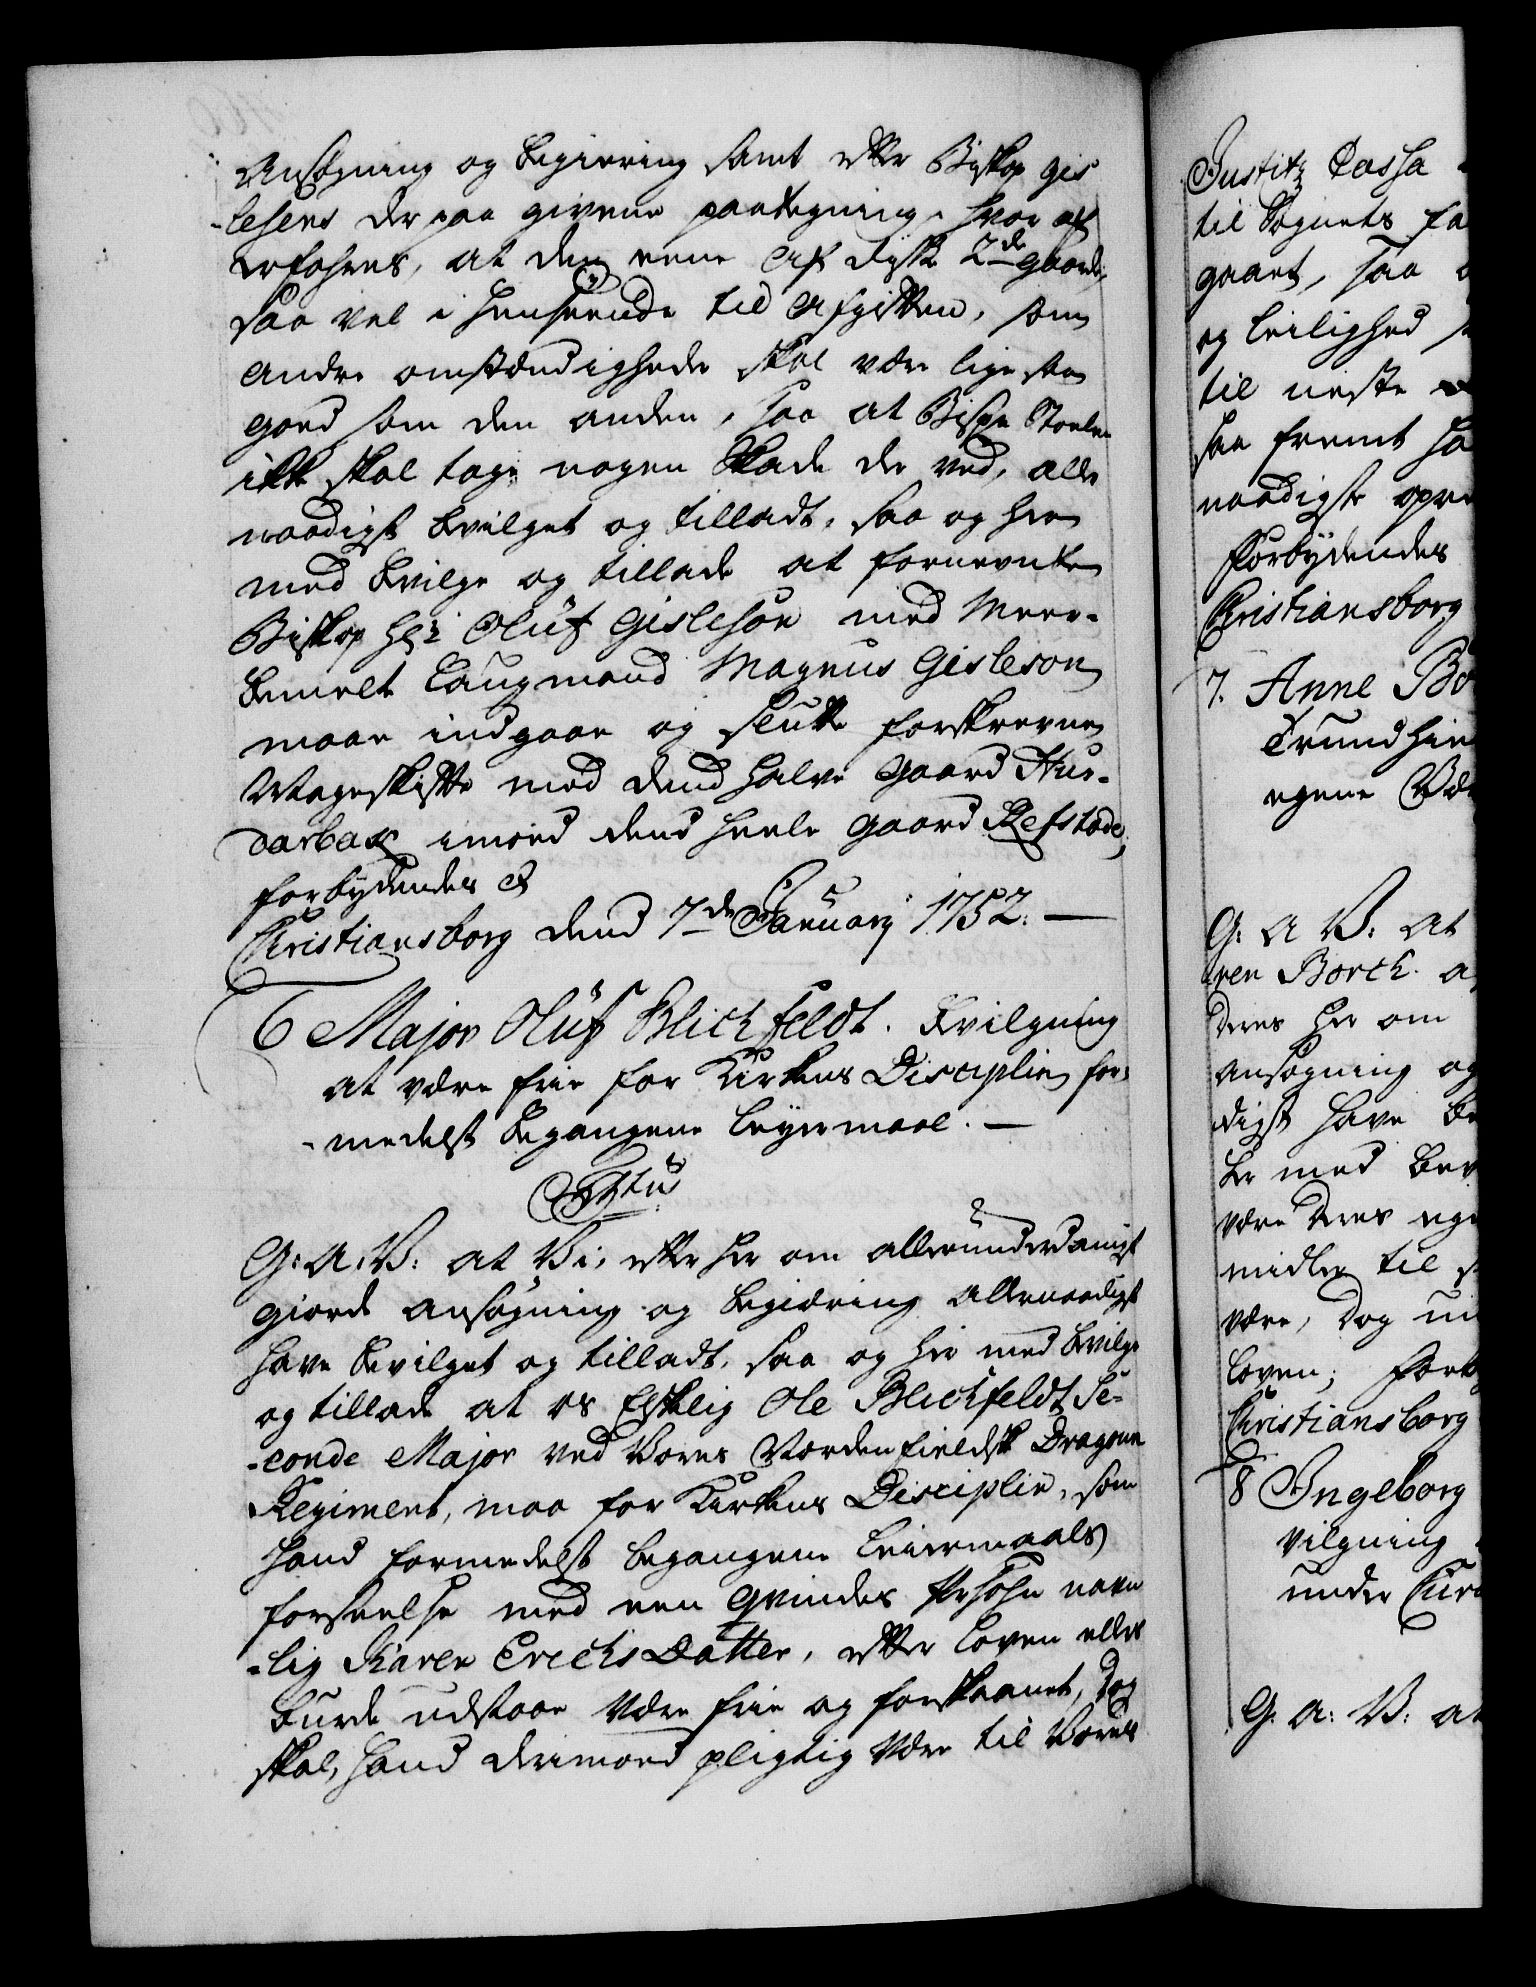 Ansøgning og begiering samt efter Biskop Gis
-lesens der paa givene paategning, hvor af
erfahres, at den eene af disse 2de gaarde,
saa vel i henseende til afgiften, som
andre omstændighede skal være lige saa
goed som den anden, saa at Bispe Stoelen
ikke skal tage nogen Skade der ved, aller
naadigst bevilget og tilladt, saa og her
med bevilge og tillade at fornevnte
Biskop Hr: Oluf Gisleson med Meer-
bemelte Laugmand Magnus Gisleson
maae indgaae og slutte forskrevne
Mageskifte med dend halve gaard Hur-
darbax imoed dend heele gaard Refstade,
forbydendes &
Christiansborg dend 7de Januarij 1752. —
6 Major Oluf Blichfeldt. Bevilgning
at være frie for Kirkens Disciplin for-
-medelst begangene leyermaal. —
G: A: V: at Vi, efter her om allerunderdanigst
giorde ansøgning og begiæring allernaadigst
have bevilget og tilladt, saa og her med bevilge
og tillade at os Elskelig Ole Blichfeldt Se-
-conde Major ved Vores Nordenfieldske Dragoun
Regiment, maa for Kirkens Disciplin, som
hand formedelst begangene Leiermaals
forseelse med een Qvindes Persohn navn
-lig Karen Erichs Datter, efter Loven ellers
burde udstaae være frie og forskaanet, dog
skal hand derimoed pligtig være til Vores
Justitz Cassa
til Sognets Fa
gaaet, saa
og leilighed
til neste
saa fremt ha
naadigste opre
Forbydendes
Christiansborg
7. Anne Bo
Trundhie
egene Væ
G: A V: at
ren Borch a
deres her om
ansøgning og
digst have be
her med bev
være deres ege
midler til
være, dog
loven; Forb
Christiansborg
8 Ingeborg
vilgning
under Cura
G: A: V: at